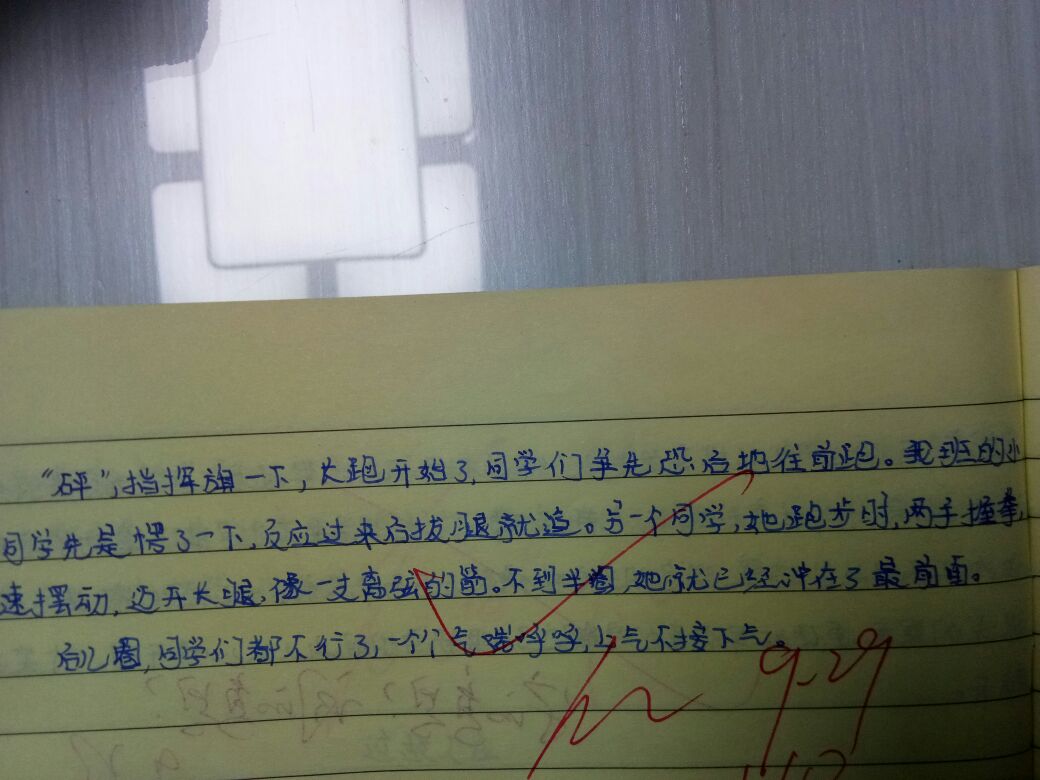 “砰”，指挥旗一下，长跑开始了，同学们争先恐后地往前跑。我班的小
同学先是愣了一下，反应过来后拔腿就追。另一个同学，她跑步时，两手握拳，
速摆动，迈开长腿，像一支离弦的箭。不到半圈，她就已经冲在了最前面。
后几圈，同学们都不行了，一个个气喘呼呼，上气不接下气。
9.29